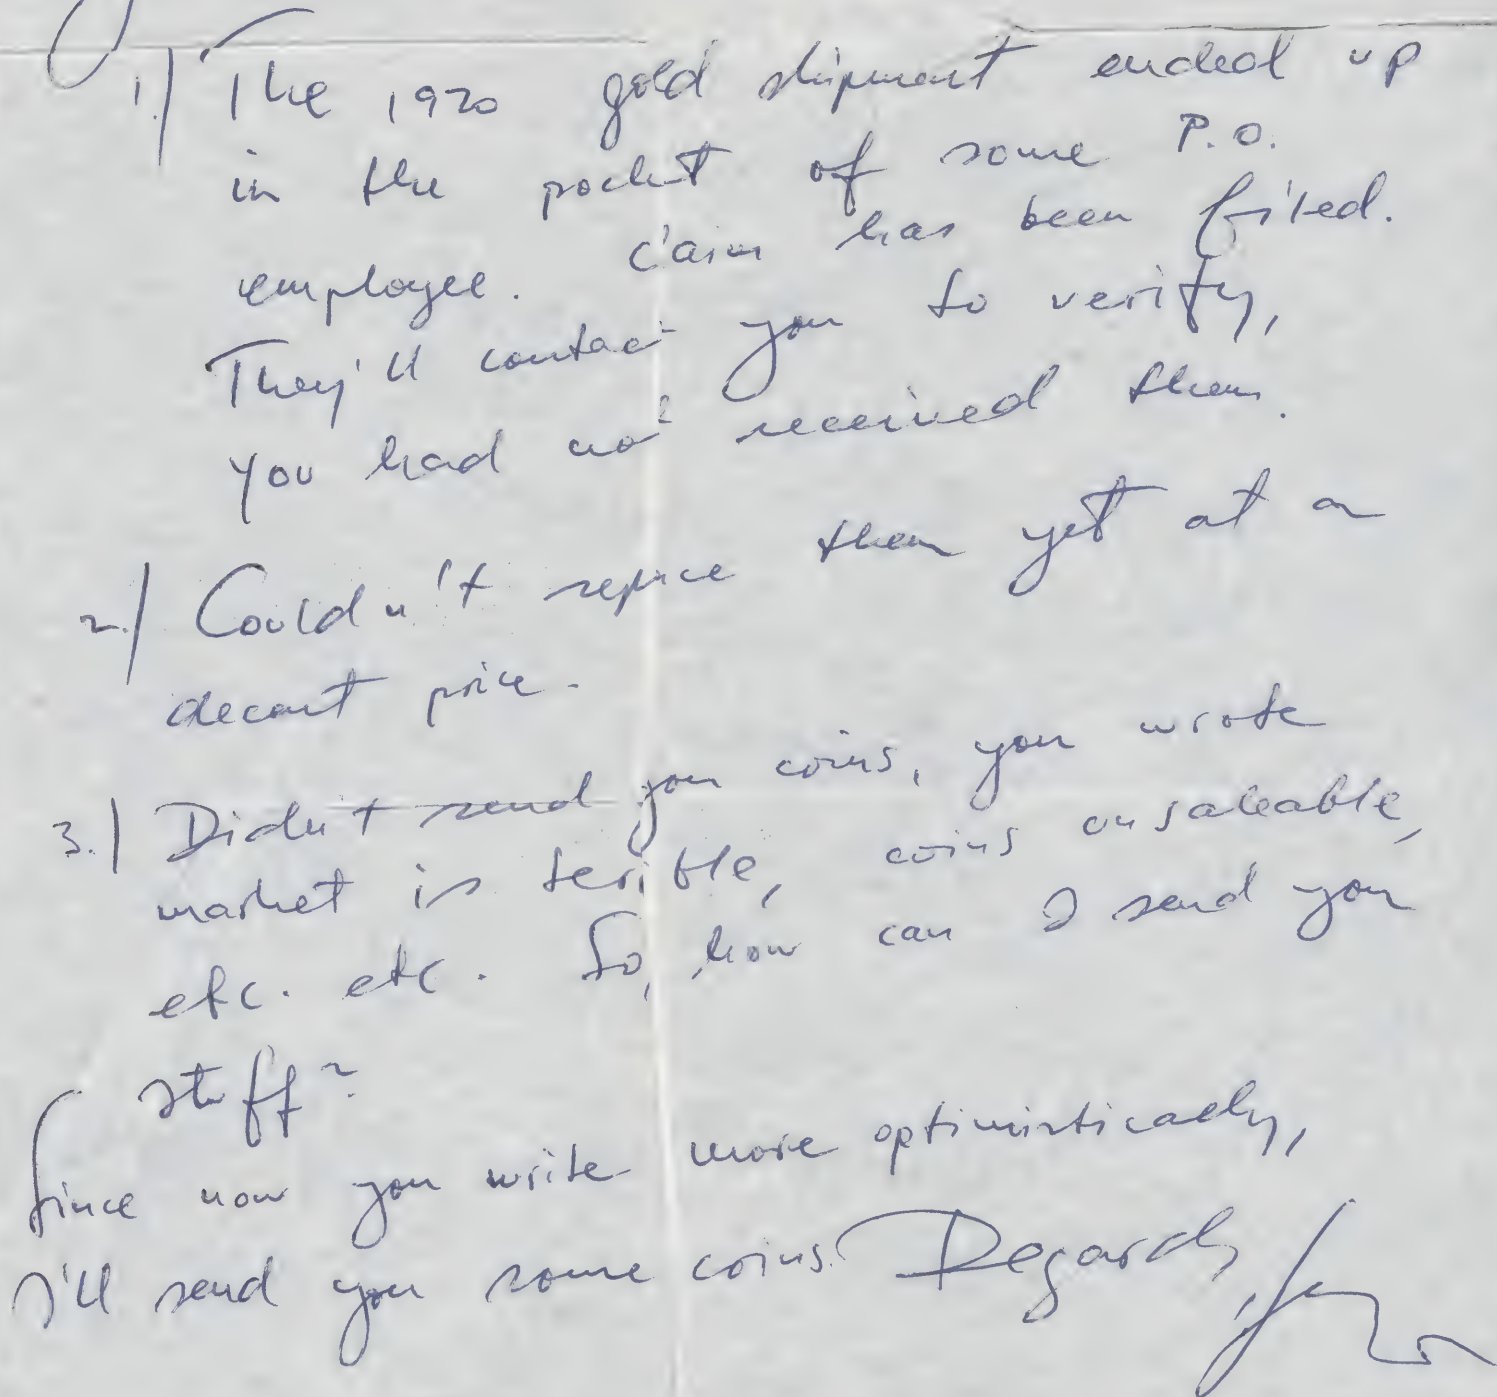 1.) The 1920 gold shipment ended up
in the pocket of some P.O.
employee. Claim has been filed.
They'll contact you to verify,
you had not received them.
2.) Couldn't replace them yet at a
decent price.
3.) Didn't send you coins, you wrote
market is terible, coins unsaleable,
etc. etc. So, how can I send you
stuff?
Since now you write more optimistically,
I'll send you some coins. Regards,